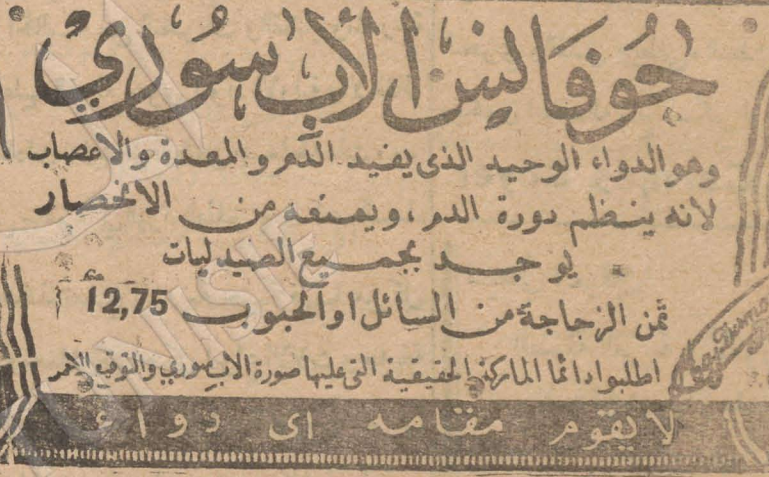 جوفانيس الأب سوري
وهو الدواء الوحيد الذى يفيد الدم والمعدة والاعصاب
لانه ينظم دورة الدم، ويمنعه من الانحصار
يوجد بجميع الصيدليات
ثمن الزجاجة من السائل او الحبوب 12,75
اطلبوا دائما الماركة الحقيقية التى عليها صورة الاب سوري والتوقيع الاحمر
لا يقوم مقامه اى دواء